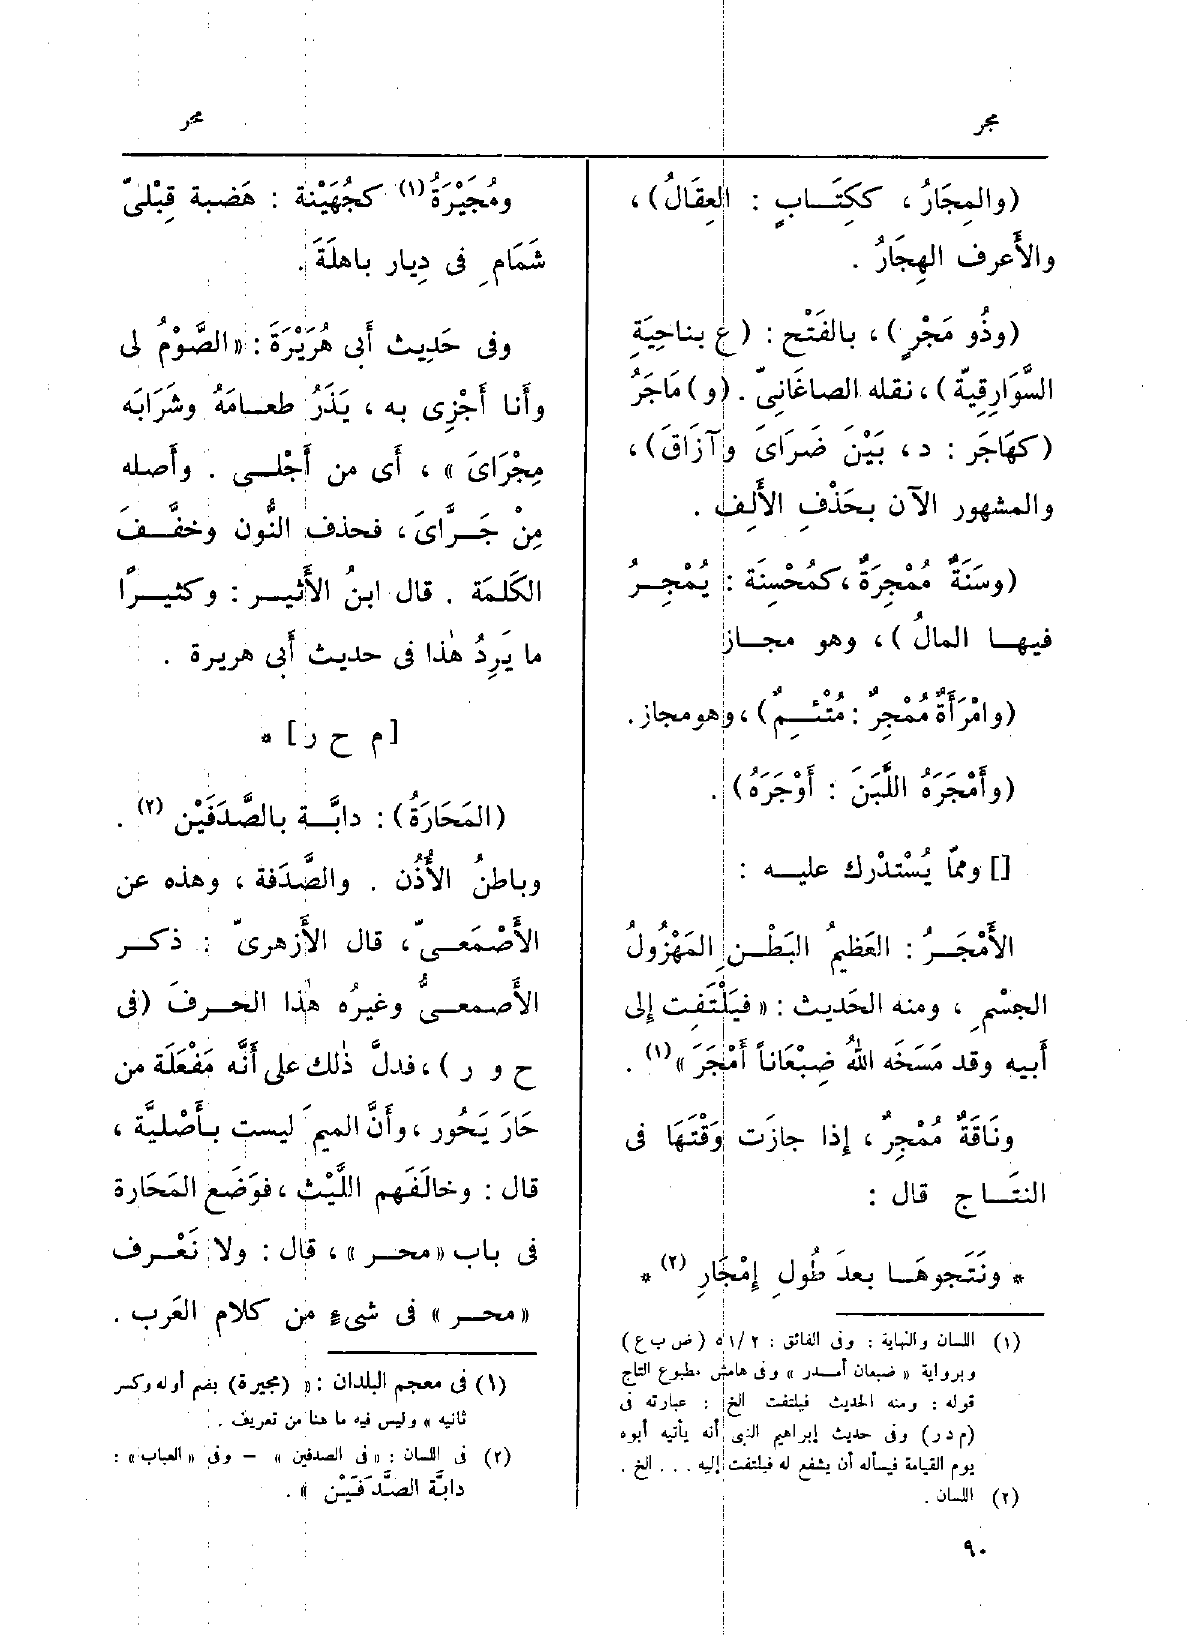 مجر
مجر
(والمِجَارُ ، ككِتَــابٍ : العِقَالُ) ،
والأَعرف الهِجَارُ .
(وذُو مَجْرٍ) ، بالفَتْح : (ع بناحِيَةِ
السَّوَارِقِيّة) ، نقله الصاغَانِيّ . (و) مَاجَرُ
(كهَاجَر : د ، بَيْنَ ضَرَاىَ وآزَاقَ) ،
والمشهور الآن بحَذْفِ الأَلِف .
(وسَنَةٌ مُمْجِرَةٌ ، كمُحْسِنَة : يُمْجِــرُ
فيهــا المالُ) ، وهو مجــاز
(وامْرَأَةٌ مُمْجِرٌ : مُتْئِــمٌ) ، وهو مجاز .
(وأَمْجَرَهُ اللَّبَنَ : أَوْجَرَهُ) .
[] وممّا يُسْتدْرك عليــه :
الأَمْجَــرُ : العَظِيمُ البَطْــنِ المَهْزُولُ
الجِسْمِ ، ومنه الحَدِيث : « فيَلْتَفِت إلى
أَبيه وقد مَسَخَه اللهُ ضِبْعَاناً أَمْجَرَ » (١) .
ونَاقَةٌ مُمْجِرٌ ، إذا جازَت وَقْتَهَا فى
النتَــاج قال :
* ونَتَجوهَــا بعدَ طُولِ إِمْجَارِ (٢) *
(١) اللسان والنهاية : وفى الفائق : ٥١/٢ (ض ب ع)
وبرواية « ضبعان أمــدر » وفى هامش مطبوع التاج
قوله : ومنه الحديث فيلتفت الخ : عبارته فى
(م د ر) وفى حديث إبراهيم النبى أنه يأتيه أبوه
يوم القيامة فيسأله أن يشفع له فيلتفت إليه . . . الخ .
(٢) اللسان .
ومُجَيْرَةُ (١) كجُهَيْنة : هَضبة قِبْلىّ
شَمَامِ فى دِيار باهلَةَ .
وفى حَدِيث أَبى هُرَيْرَةَ : « الصَّوْمُ لى
وأَنا أَجْزِى به ، يَذَرُ طعــامَهُ وشَرَابَه
مِجْرَاىَ » ، أَى من أَجْلــى . وأَصله
مِنْ جَــرَّاىَ ، فحذف النُّون وخفَّــفَ
الكَلمَة . قال ابنُ الأَثيــر : وكثيــرًا
ما يَرِدُ هٰذا فى حديث أَبى هريرة .
[م ح ر] *
(المَحَارَةُ) : دابَّــة بالصَّدَفَيْن (٢) .
وباطنُ الأُذُن . والصَّدَفة ، وهذه عن
الأَصْمَعــىّ ، قال الأَزهرىّ : ذكــر
الأَصمعــىُّ وغيرُه هٰذا الحــرفَ (فى
ح و ر) ، فدلَّ ذٰلك على أَنَّه مَفْعَلَة من
حَارَ يَحُور ، وأَنَّ الميمَ ليست بأَصْليَّة ،
قال : وخالَفَهم اللَّيْث ، فوَضَع المَحَارة
فى باب « محــر » ، قال : ولا نَعْــرف
« محــر » فى شىءٍ من كلام العَرب .
(١) فى معجم البلدان : « (مجيرة) بضم أوله وكسر
ثانيه » وليس فيه ما هنا من تعريف .
(٢) فى اللسان : « فى الصدفين » – وفى « العباب » :
دابَّة الصَّدَفَيْن » .
٩٠